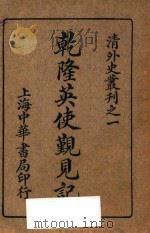 清外史叢刊之一
乾隆英使觀見記
上海中華書局印行